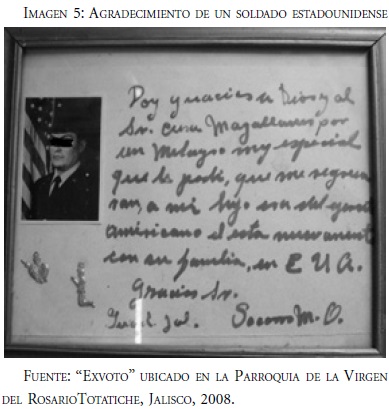 IMAGEN 5: AGRADECIMIENTO DE UN SOLDADO ESTADOUNIDENSE
Doy gracias a Dios y al
Sr. cura Magallanes por
un Milagro muy especial
que le pedi, que me regresa
ran, a mi hijo era del
americano el esta nuevamente
con su familia, en E U A.
Gracias Sr.
Jal. Socorro M. O.
FUENTE: “EXVOTO” UBICADO EN LA PARROQUIA DE LA VIRGEN
DEL ROSARIOTOTATICHE, JALISCO, 2008.